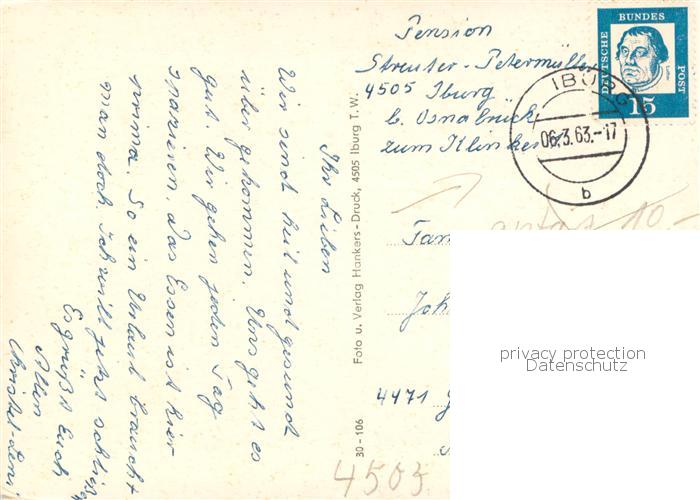 Ihr Lieben
Wir sind heil und gesund
über gekommen. Uns geht es
gut. Wir gehen jeden Tag
spazieren, das Essen ist hier
prima. So ein Urlaub braucht
man doch. Ich will jetzt schließen
Es grüßt Euch
Allen
30 - 106 Foto u. Verlag Hankers-Druck, 4505 Iburg T.W.
Pension
Streuter-Petermüller
4505 Iburg
b. Osnabrück
zum Klinken
DEUTSCHE BUNDES POST
15
IBURG
06.3.63.-17
b
10.-
Fam
Joh
4471
4503
privacy protection
Datenschutz